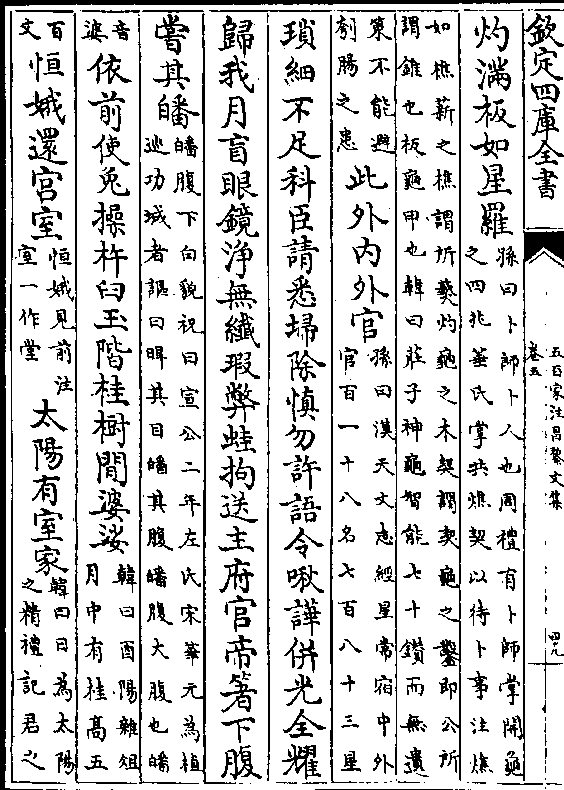 欽定四庫全書
五百家注昌黎文集
卷五
四九
灼滿板如星羅孫曰卜師卜人也周禮有卜師掌開龜
之四兆菙氏掌共燋契以待卜事注燋
如樵薪之樵謂所爇灼龜之木契謂契龜之鑿即公所
謂錐也板龜甲也韓曰莊子神龜智能七十鑽而無遺
筴不能避
刳腸之患
此外内外官孫曰漢天文志經星常宿中外
官百一十八名七百八十三星
瑣細不足科臣請悉埽除慎勿許語令啾譁併光全耀
歸我月盲眼鏡淨無纖瑕弊蛙拘送主府官帝箸下腹
嘗其皤皤腹下白貌祝曰宣公二年左氏宋華元為植
廵功城者謳曰睅其目皤其腹皤腹大腹也皤
音
婆
依前使兔操杵臼玉階桂樹閒婆娑韓曰酉陽雜俎
月中有桂高五
百
文
恒娥還宫室恒娥見前注
室一作堂
太陽有室家韓曰日為太陽
之精禮記君之